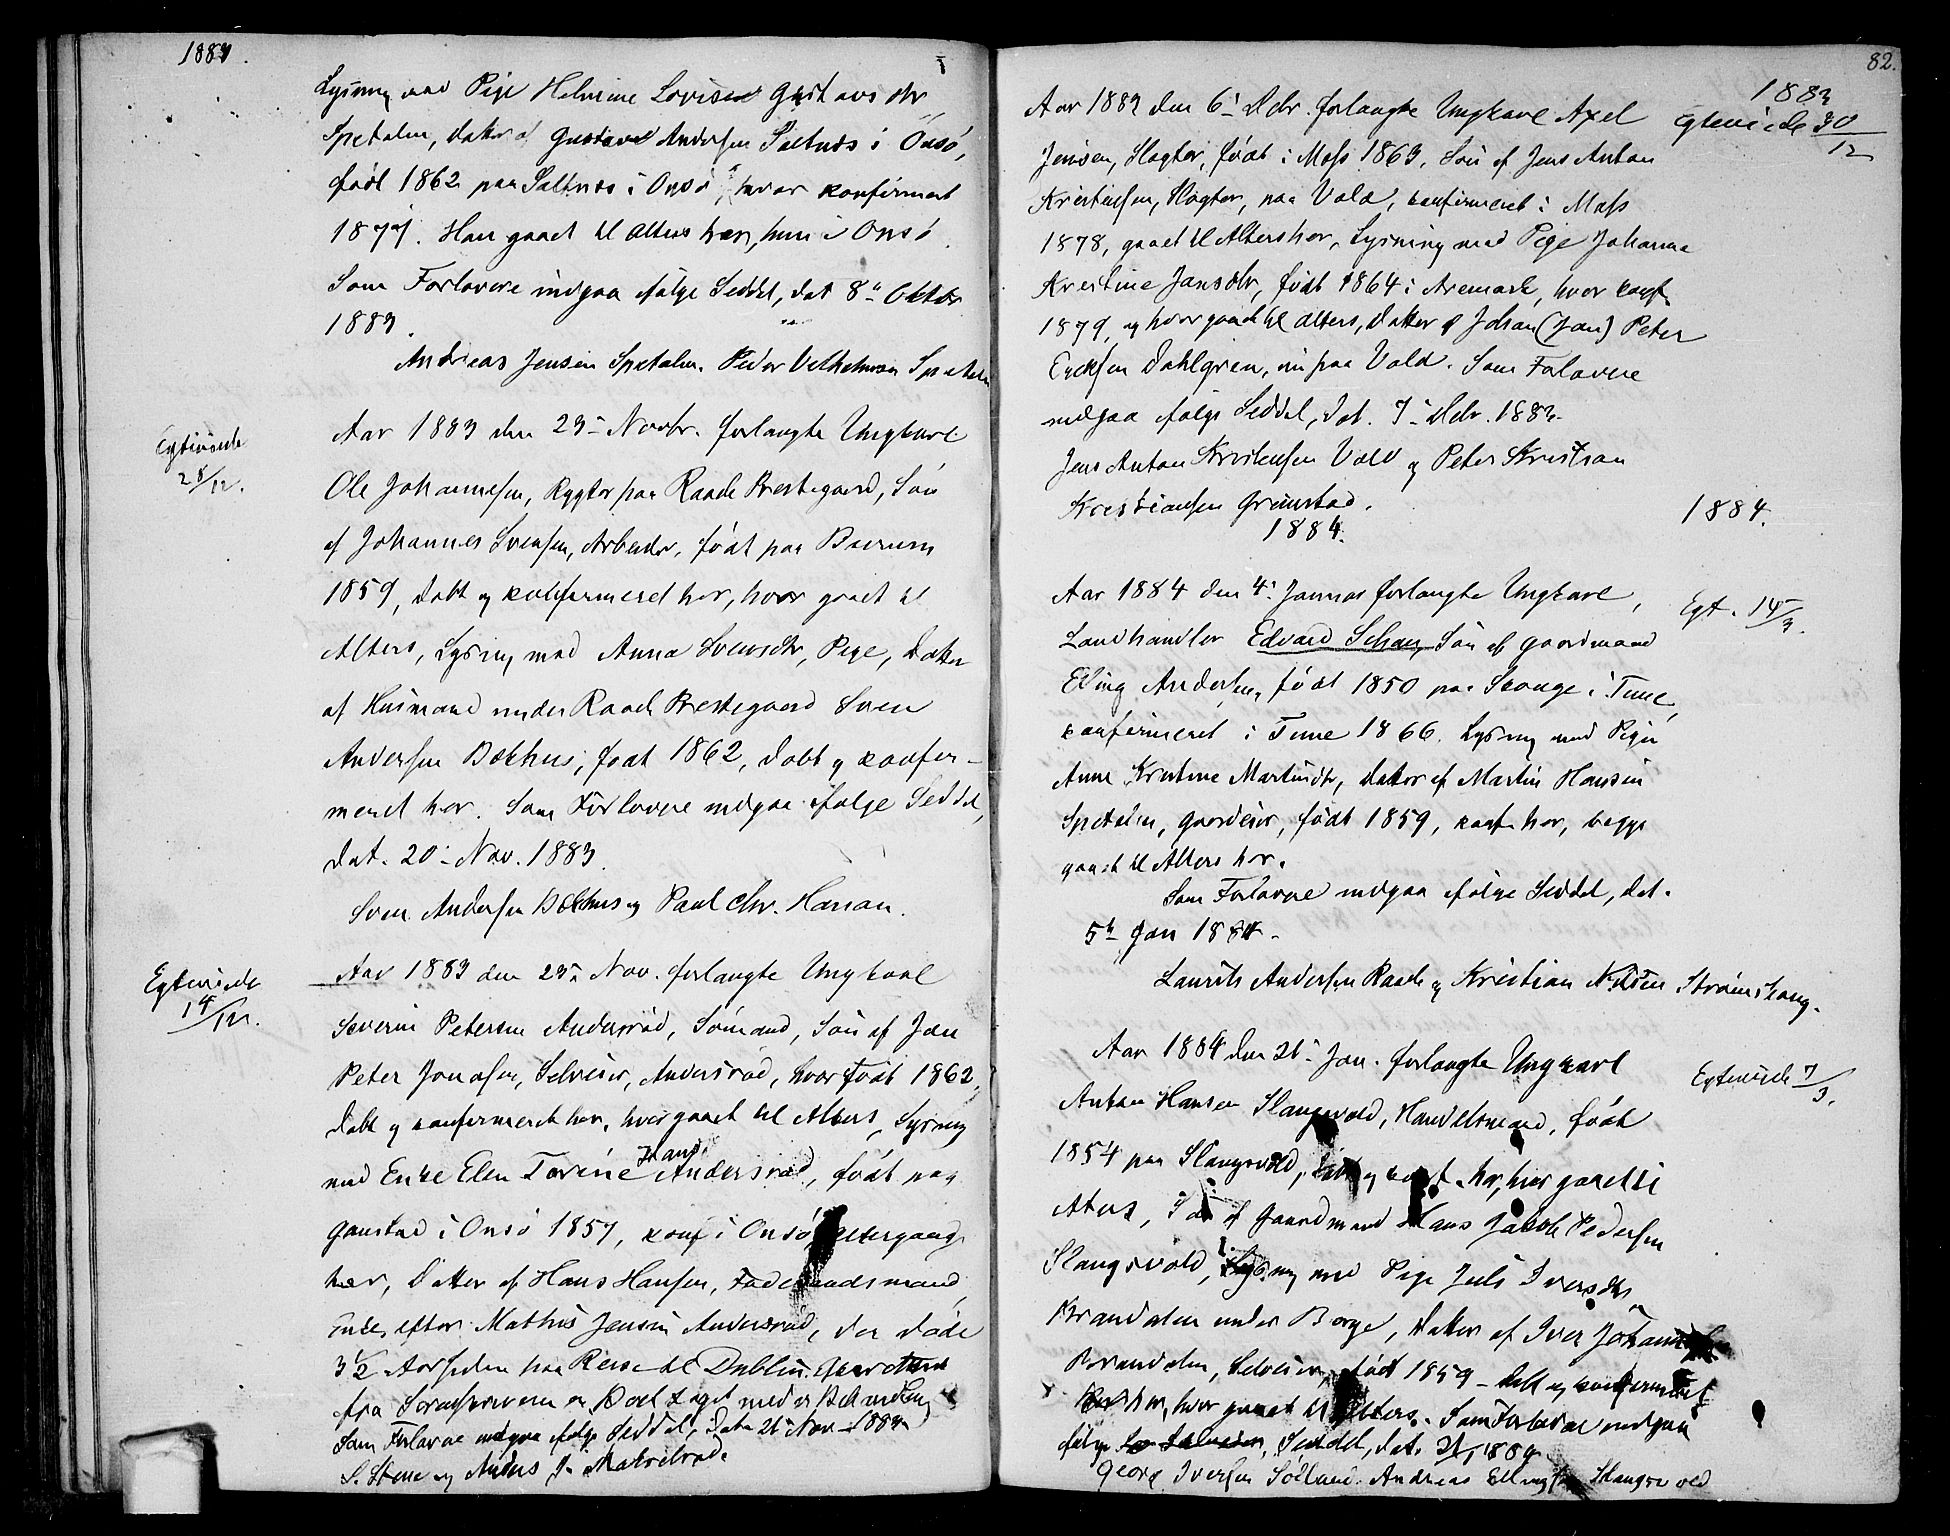 1883.
Lysning med Pige Helmine Lovise Gustavsdtr
Spetalen, Datter af Gustav Andersen Saltnæs i Onsø,
født 1862 paa Saltnæs i Onsø, hvor konfirmert
1877. Han gaaet til Alters her, hun i Onsø.
Som Forlovere indgaa ifølge Seddel, dat 8de Oktbr
1883.
Andreas Jensen Spetalen. Peder Vilhelmsen Spetalen
Egteviede
28/12.
Aar 1883 den 23de Novbr. forlangte Ungkarl
Ole Johannesen, Røgter paa Raade Prestegaard, Søn
af Johannes Svensen, Arbeider, født paa
1859, døbt og konfirmeret her, hvor gaaet til
Alters, Lysning med Anna Svensdtr, Pige, Datter
af Husmand under Raade Prestegaard Sven
Andersen Bækhus, født 1862, døbt og konfir-
meret her. Som Forlovere indgaa ifølge Seddel,
dat. 20de Nov. 1883.
Sven Andersen Bækhus og Paul Chr. Hansen.
Egteviede
14/12.
Aar 1883 den 23de Nov. forlangte Ungkarl
Severin Petersen Andersrød, Sømand, Søn af Jan
Peter Jonasen, Selveier, Andersrød, hvor født 1862,
døbt og konfirmeret her, hvor gaaet til Alters, Lysning
med Enke Elen Torine Hansd. Andersrød, født paa
Ganstad i Onsø 1857, konf i Onsø, Altergang
her, Datter af Hans Hansen,
Enke efter Mathis Jensen Andersrød, der døde
3 1/2 Aar siden paa Reise til Dublin.
fra Sorenskriveren er
Som Forlovere indgaa ifølge Seddel, Dat. 21de Nov 1883
S. Stene og Anders J.
82.
1883
Egteviede 30/12
Aar 1883 den 6te Debr. forlangte Ungkarl Axel
Jensen, Slagter, født i Moss 1863, Søn af Jens Anton
Kristensen, Slagter, paa Vold, konfirmeret i Moss
1878, gaaet til Alters her, Lysning med Pige Johanne
Kristine Jansdtr, født 1864 i Aremark, hvor konf.
1879, og hvor gaaet til Alters, Datter af Johan (Jan) Peter
Ericksen Dahlgren, nu paa Vold. Som Forlovere
indgaa ifølge Seddel, dat. 7de Debr. 1883
Jens Anton Kristensen Vold og Peter Kristian
Kristiansen Grimstad.
1884.
1884.
Aar 1884 den 4de Januar forlangte Ungkarl,
Egt. 14/3.
Landhandler Edvard Schau, Søn af Gaardmand
Elling Andersen, født 1850 paa Skouge i Tune,
konfirmeret i Tune 1866. Lysning med Pigen
Anne Kristine Martinsdtr, Datter af Martin Hansen
Spetalen, Gaardeier, født 1859, konf. her, begge
gaaet til Alters her.
Som Forlovere indgaa ifølge Seddel, dat.
5te Jan 1884.
Laurits Andersen Raade og Kristian Nilsen Strømshaug.
Aar 1884 den 26de Jan. forlangte Ungkarl
Egteviede 7/3.
Anton Hansen Slangsvold, Handelsmand, født
1854 paa Slangsvold, døbt og konf. her, hvor gaaet til
Alters, Søn af Gaardmand Hans Jakob Pedersen
Slangsvold, Lysning med Pige Juli Iversdtr
Brandalen under Borge, Datter af Iver
Brandalen, Selveier, født 1859 – døbt og konfirmeret
her, hvor gaaet til Alters. Som Forlovere indgaa
ifølge Seddel, dat. 1884
Georg Iversen Andreas Ellingsen Slangsvold